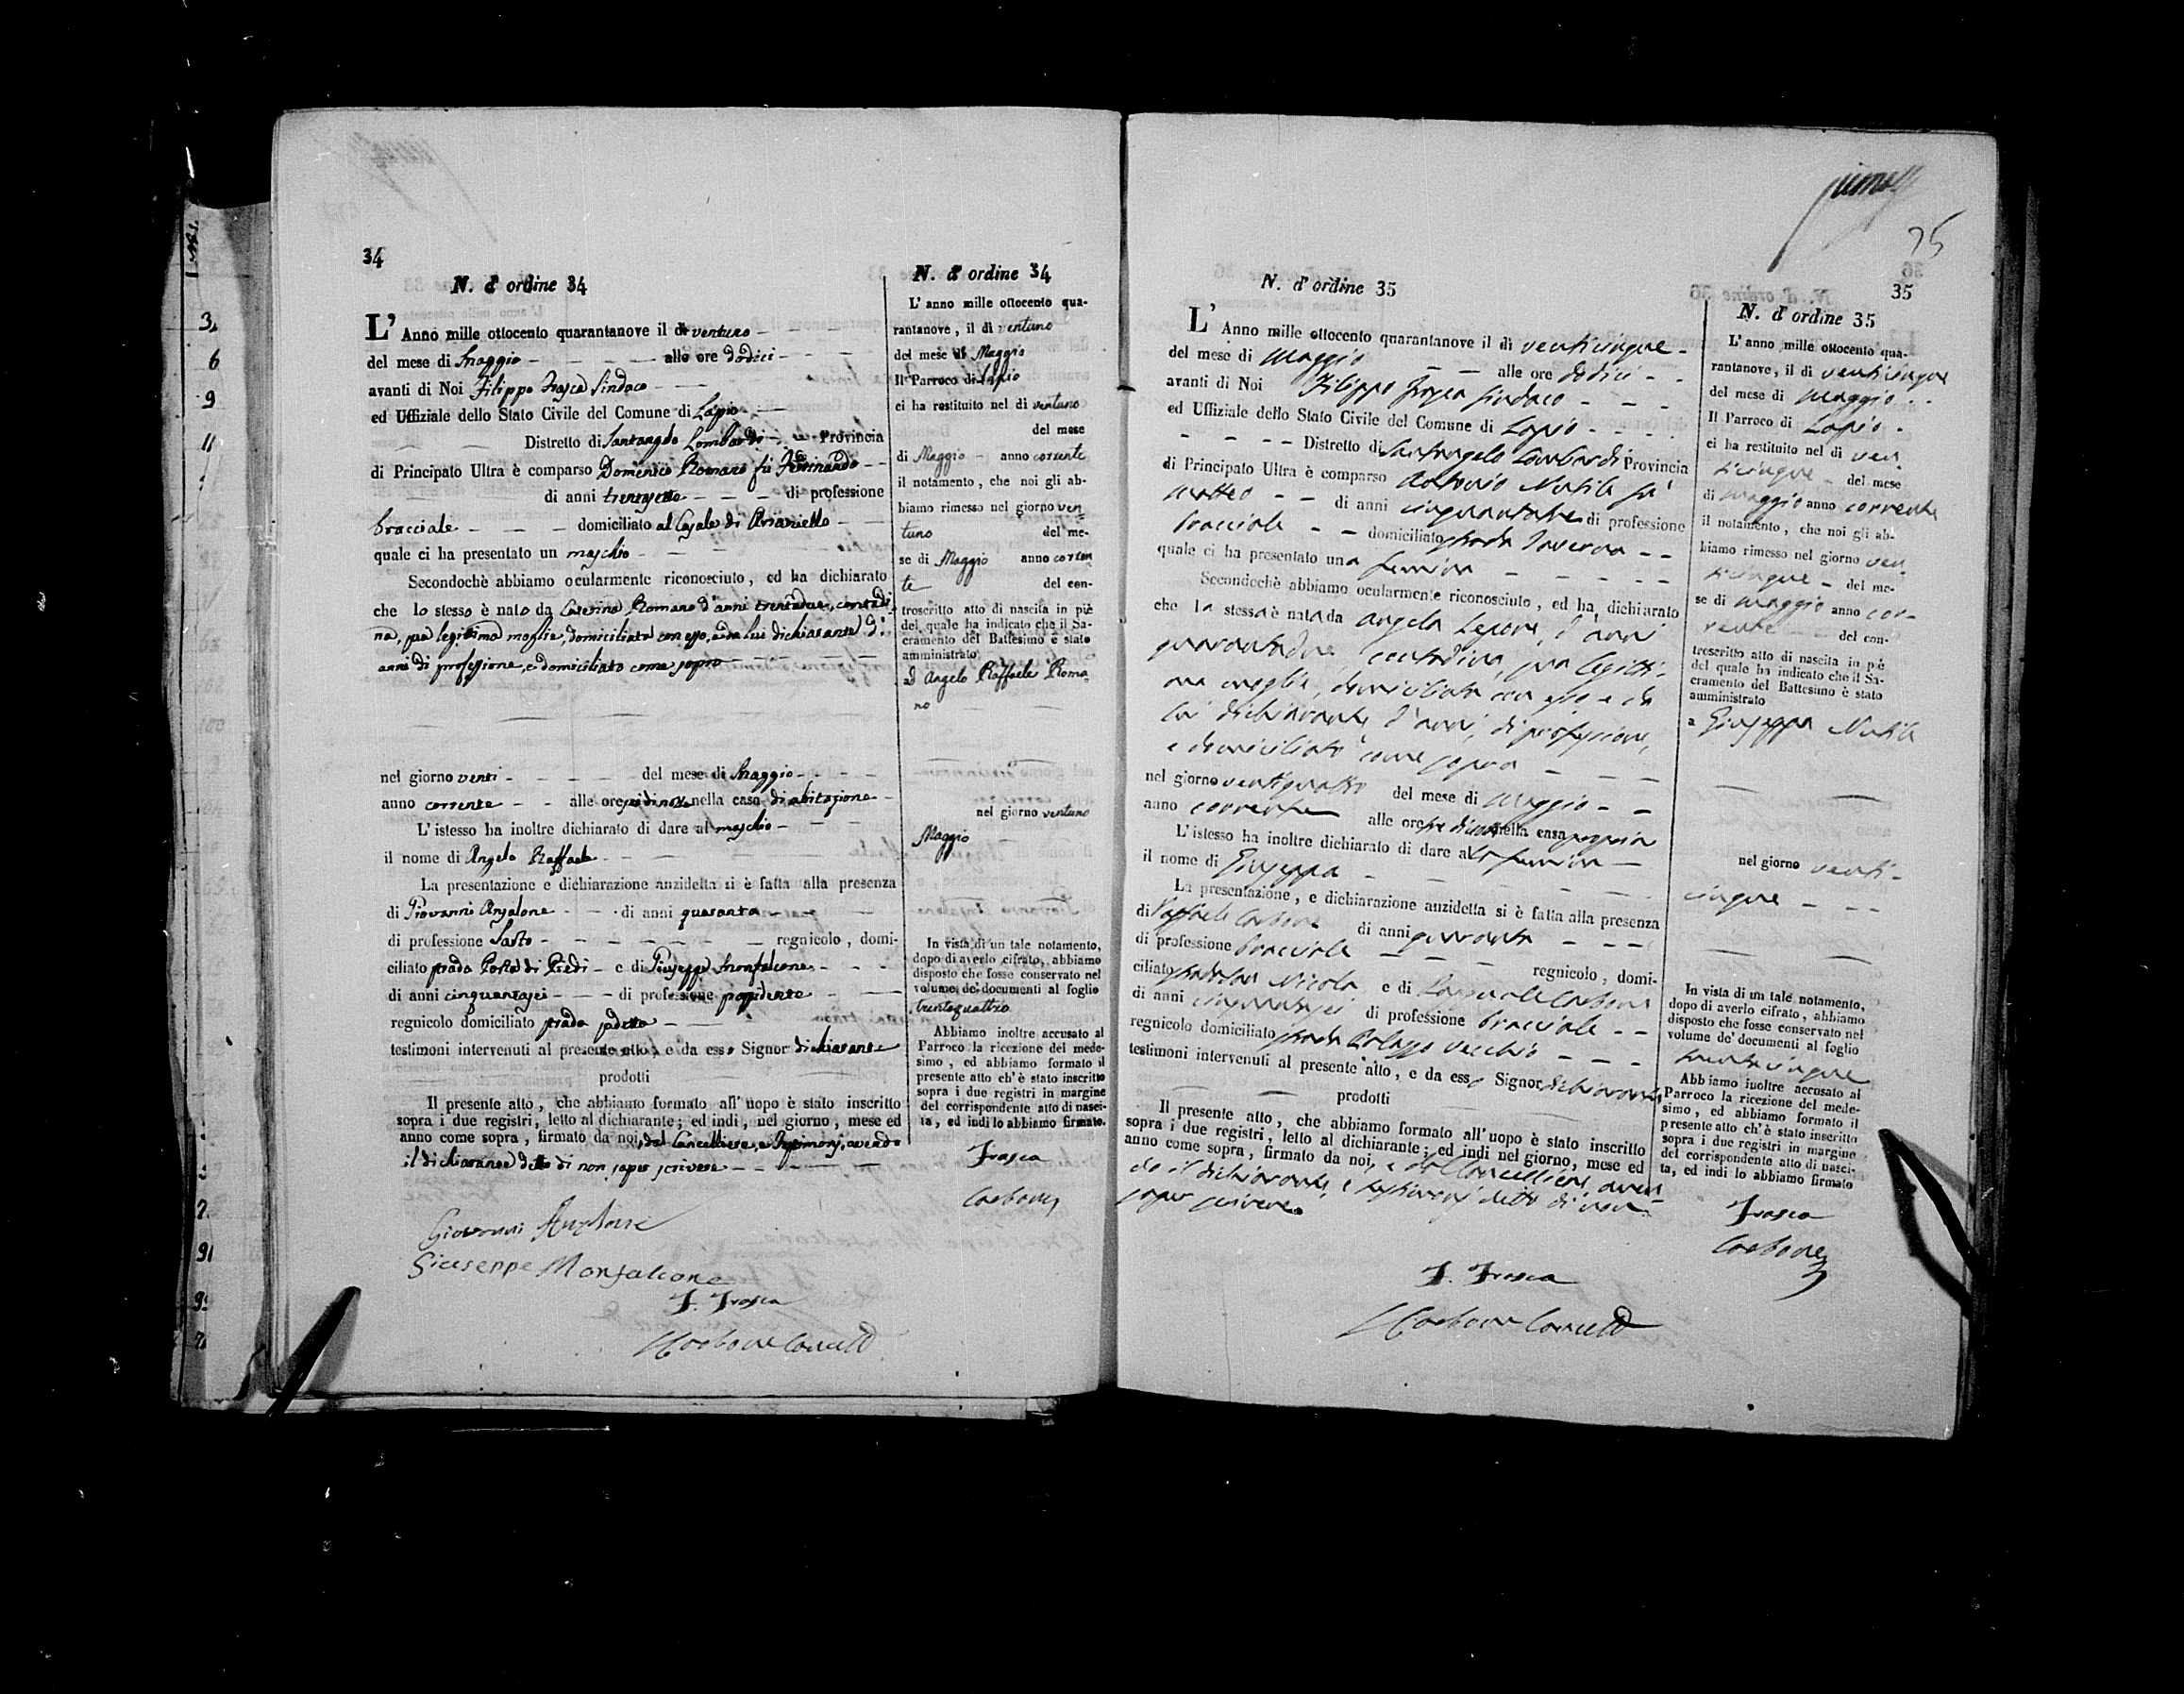 34
N. d' ordine 34
L' Anno mille ottocento quarantanove il dì ventuno
del mese di Maggio alle ore dodici
avanti di Noi Filippo Frasca Sindaco
ed Uffiziale dello Stato Civile del Comune di Lapio
Distretto di Santangelo Lombardi Provincia
di Principato Ultra è comparso Domenico Romano fu Ferdinando
di anni trentasette di professione
bracciale domiciliato al Casale di Arianiello
quale ci ha presentato un maschio
Secondochè abbiamo ocularmente riconosciuto, ed ha dichiarato
che lo stesso è nato da Caterina Romano d'anni trentadue, contadi
na, sua legitima moglie, domiciliata con esso, e da lui dichiarante d'
anni di professione, e domiciliato come sopra
nel giorno venti del mese di Maggio
anno corrente alle ore nella casa di abitazione
L' istesso ha inoltre dichiarato di dare al maschio
il nome di Angelo Raffaele
La presentazione e dichiarazione anzidetta si è fatta alla presenza
di Giovanni Anzalone di anni quaranta
di professione Sarto regnicolo, domi-
ciliato strada Porta di Piedi e di Giuseppe Monfalcone
di anni cinquantasei di professione possidente
regnicolo domiciliato strada sudetta
testimoni intervenuti al presente atto, e da esso Signor dichiarante
prodotti
Il presente atto, che abbiamo formato all' uopo è stato inscritto
sopra i due registri, letto al dichiarante; ed indi, nel giorno, mese ed
anno come sopra, firmato da noi, dal Cancelliere, e Testimonj, avendo
il dichiarante detto di non saper scrivere
Giovanni Anzalone
Giuseppe Monfalcone
F. Frasca
Carbone
N. d' ordine 34
L' anno mille ottocento qua-
rantanove, il dì ventuno
del mese di Maggio
Il Parroco di Lapio
ci ha restituito nel dì ventuno
del mese
di Maggio anno corrente
il notamento, che noi gli ab-
biamo rimesso nel giorno ven-
tuno del me-
se di Maggio anno corren
te del con-
troscritto atto di nascita in piè
del quale ha indicato che il Sa-
cramento del Battesimo è stato
amministrato
ad Angelo Raffaele Roma-
no
nel giorno ventuno
Maggio
In vista di un tale notamento,
dopo di averlo cifrato, abbiamo
disposto che fosse conservato nel
volume de' documenti al foglio
trentaquattro
Abbiamo inoltre accusato al
Parroco la ricezione del mede-
simo, ed abbiamo formato il
presente atto ch' è stato inscritto
sopra i due registri in margine
del corrispondente atto di nasci-
ta, ed indi lo abbiamo firmato.
Frasca
Carbone
35
35
N. d' ordine 35
L' Anno mille ottocento quarantanove il dì venticinque
del mese di Maggio alle ore dodici
avanti di Noi Filippo Frasca Sindaco
ed Uffiziale dello Stato Civile del Comune di Lapio
Distretto di Santangelo Lombardi Provincia
di Principato Ultra è comparso Antonio Nutile fu
Matteo di anni di professione
bracciale domiciliato strada Taverna
quale ci ha presentato una femina
Secondochè abbiamo ocularmente riconosciuto, ed ha dichiarato
che la stessa è nata da Angela Lepore, d'anni
quarantadue, contadina, sua legitti-
ma moglie, domiciliata con esso e da
lui dichiarante d'anni, di professione,
e domiciliato come sopra
nel giorno ventiquattro del mese di Maggio
anno corrente alle ore nella casa propria
L' istesso ha inoltre dichiarato di dare alla femina
il nome di Giuseppa
La presentazione, e dichiarazione anzidetta si è fatta alla presenza
di Raffaele Carbone di anni quaranta
di professione bracciale regnicolo, domi-
ciliato San Nicola e di Pasquale Carbone
di anni cinquantasei di professione bracciale
regnicolo domiciliato strada Palazzo Vecchio
testimoni intervenuti al presente atto, e da esso Signor dichiarante
prodotti
Il presente atto, che abbiamo formato all' uopo è stato inscritto
sopra i due registri, letto al dichiarante; ed indi nel giorno, mese ed
anno come sopra, firmato da noi, e dal Cancelliere, aven-
do il dichiarante, e testimonj detto di non
saper scrivere.
F. Frasca
Carbone
N. d' ordine 35
L' anno mille ottocento qua-
rantanove, il dì venticinque
del mese di Maggio
Il Parroco di Lapio
ci ha restituito nel dì ven-
ticinque del mese
di Maggio anno corrente
il notamento, che noi gli ab-
biamo rimesso nel giorno ven-
ticinque del me-
se di Maggio anno cor-
rente del con-
troscritto atto di nascita in piè
del quale ha indicato che il Sa-
cramento del Battesimo è stato
amministrato
a Giuseppa Nutile
nel giorno venti-
cinque
In vista di un tale notamento,
dopo di averlo cifrato, abbiamo
disposto che fosse conservato nel
volume de' documenti al foglio
trentacinque
Abbiamo inoltre accusato al
Parroco la ricezione del mede-
simo, ed abbiamo formato il
presente atto ch' è stato inscritto
sopra i due registri in margine
del corrispondente atto di nasci-
ta, ed indi lo abbiamo firmato
Frasca
Carbone